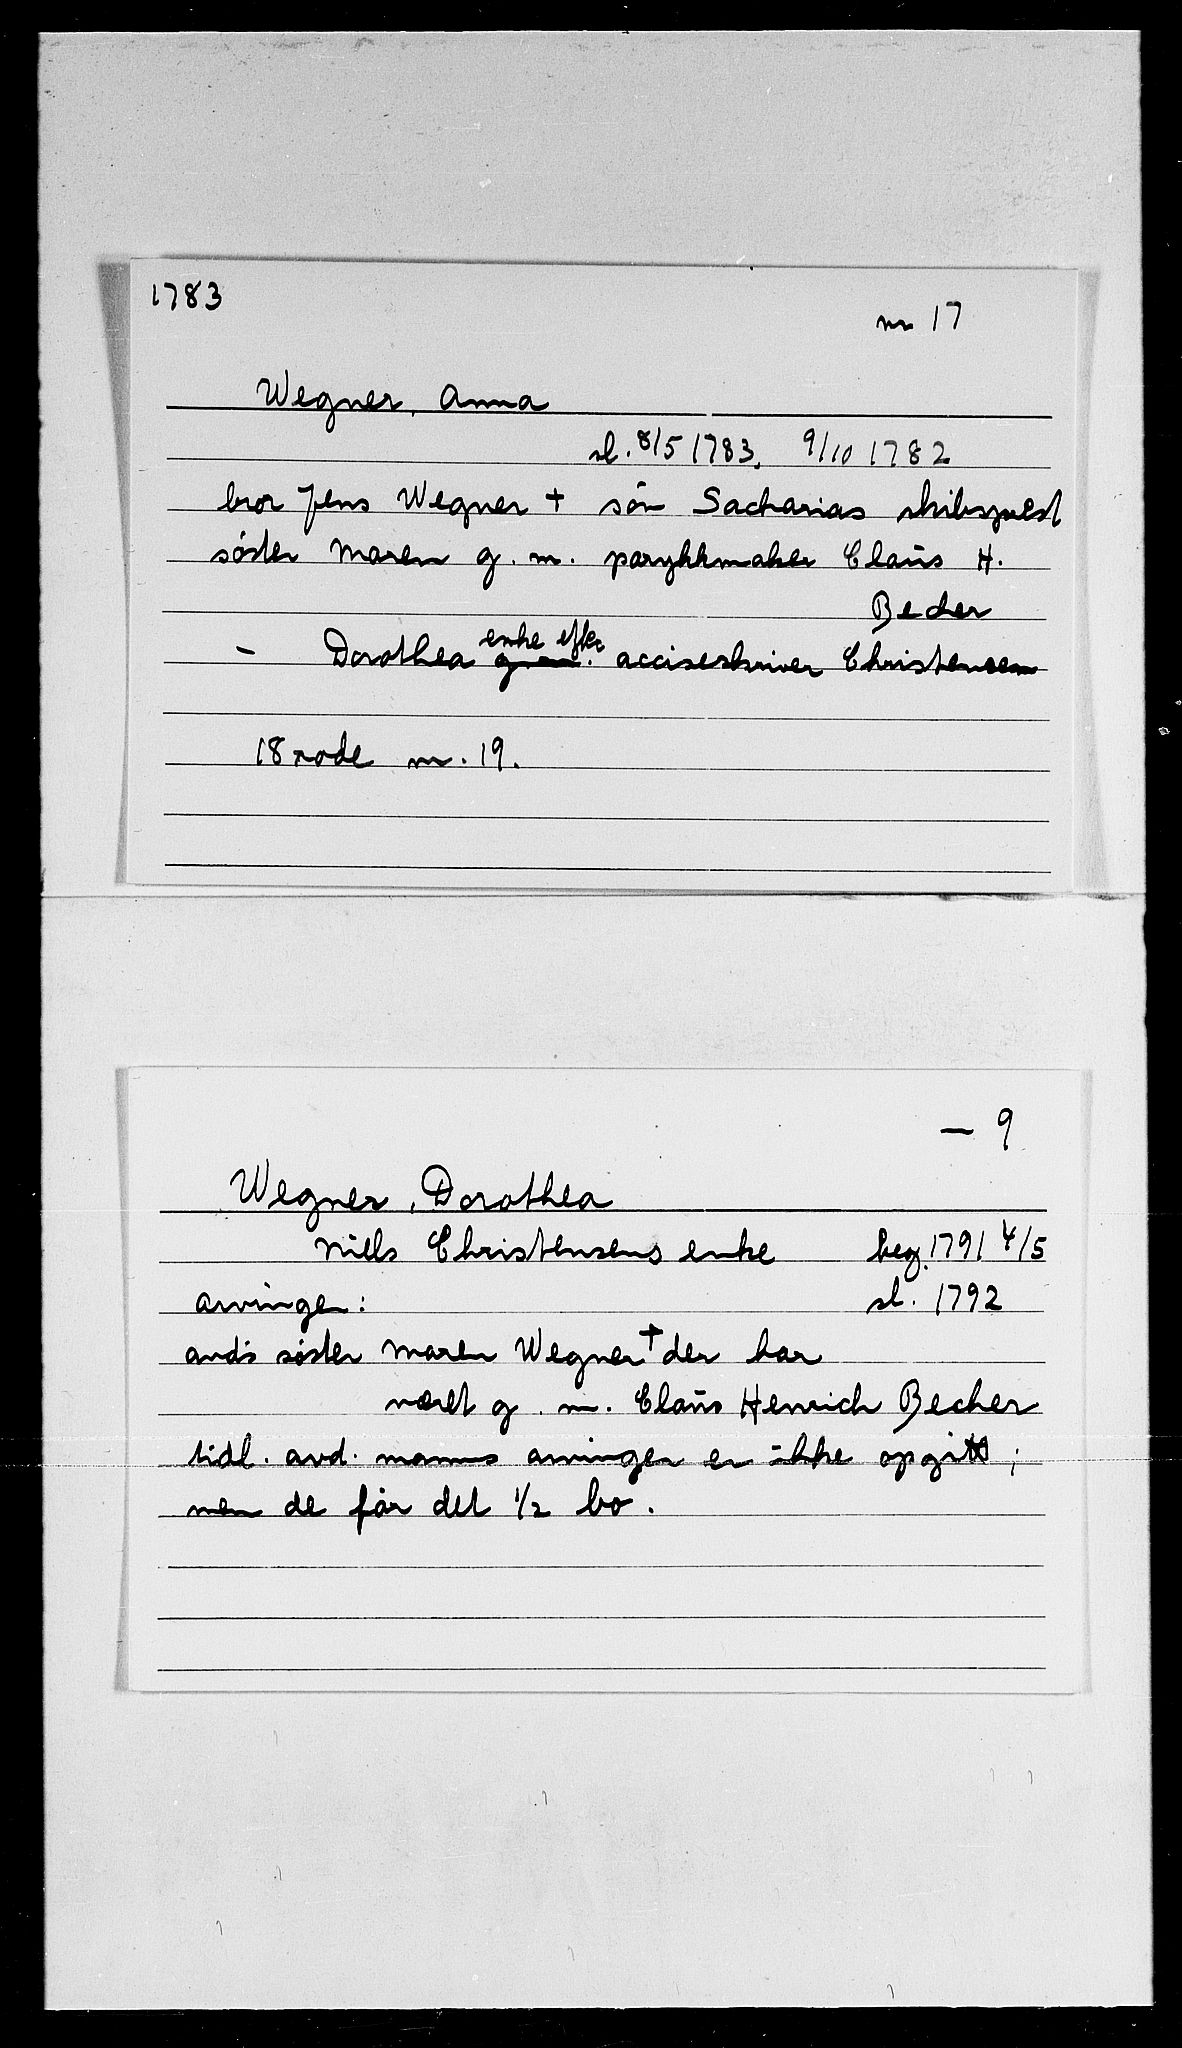 1783
nr 17
Wegner, Anna
sl. 8/5 1783. 9/10 1782
bror Jens Wegner + sön Sacharias skibsprest
söster Maren g. m. parykkmaker Claus H.
Becher
- Dorothea enke efter acciseskriver Christensen
18 rode nr. 19.
- 9
Wegner, Dorothea
Niels Christensens enke beg. 1791 4/5
arvinger: sl. 1792
avd's söster Maren Wegner + der har
været g. m. Claus Henrich Becher
tidl. avd. manns arvinger er ikke opgitt;
men de får det 1/2 bo.